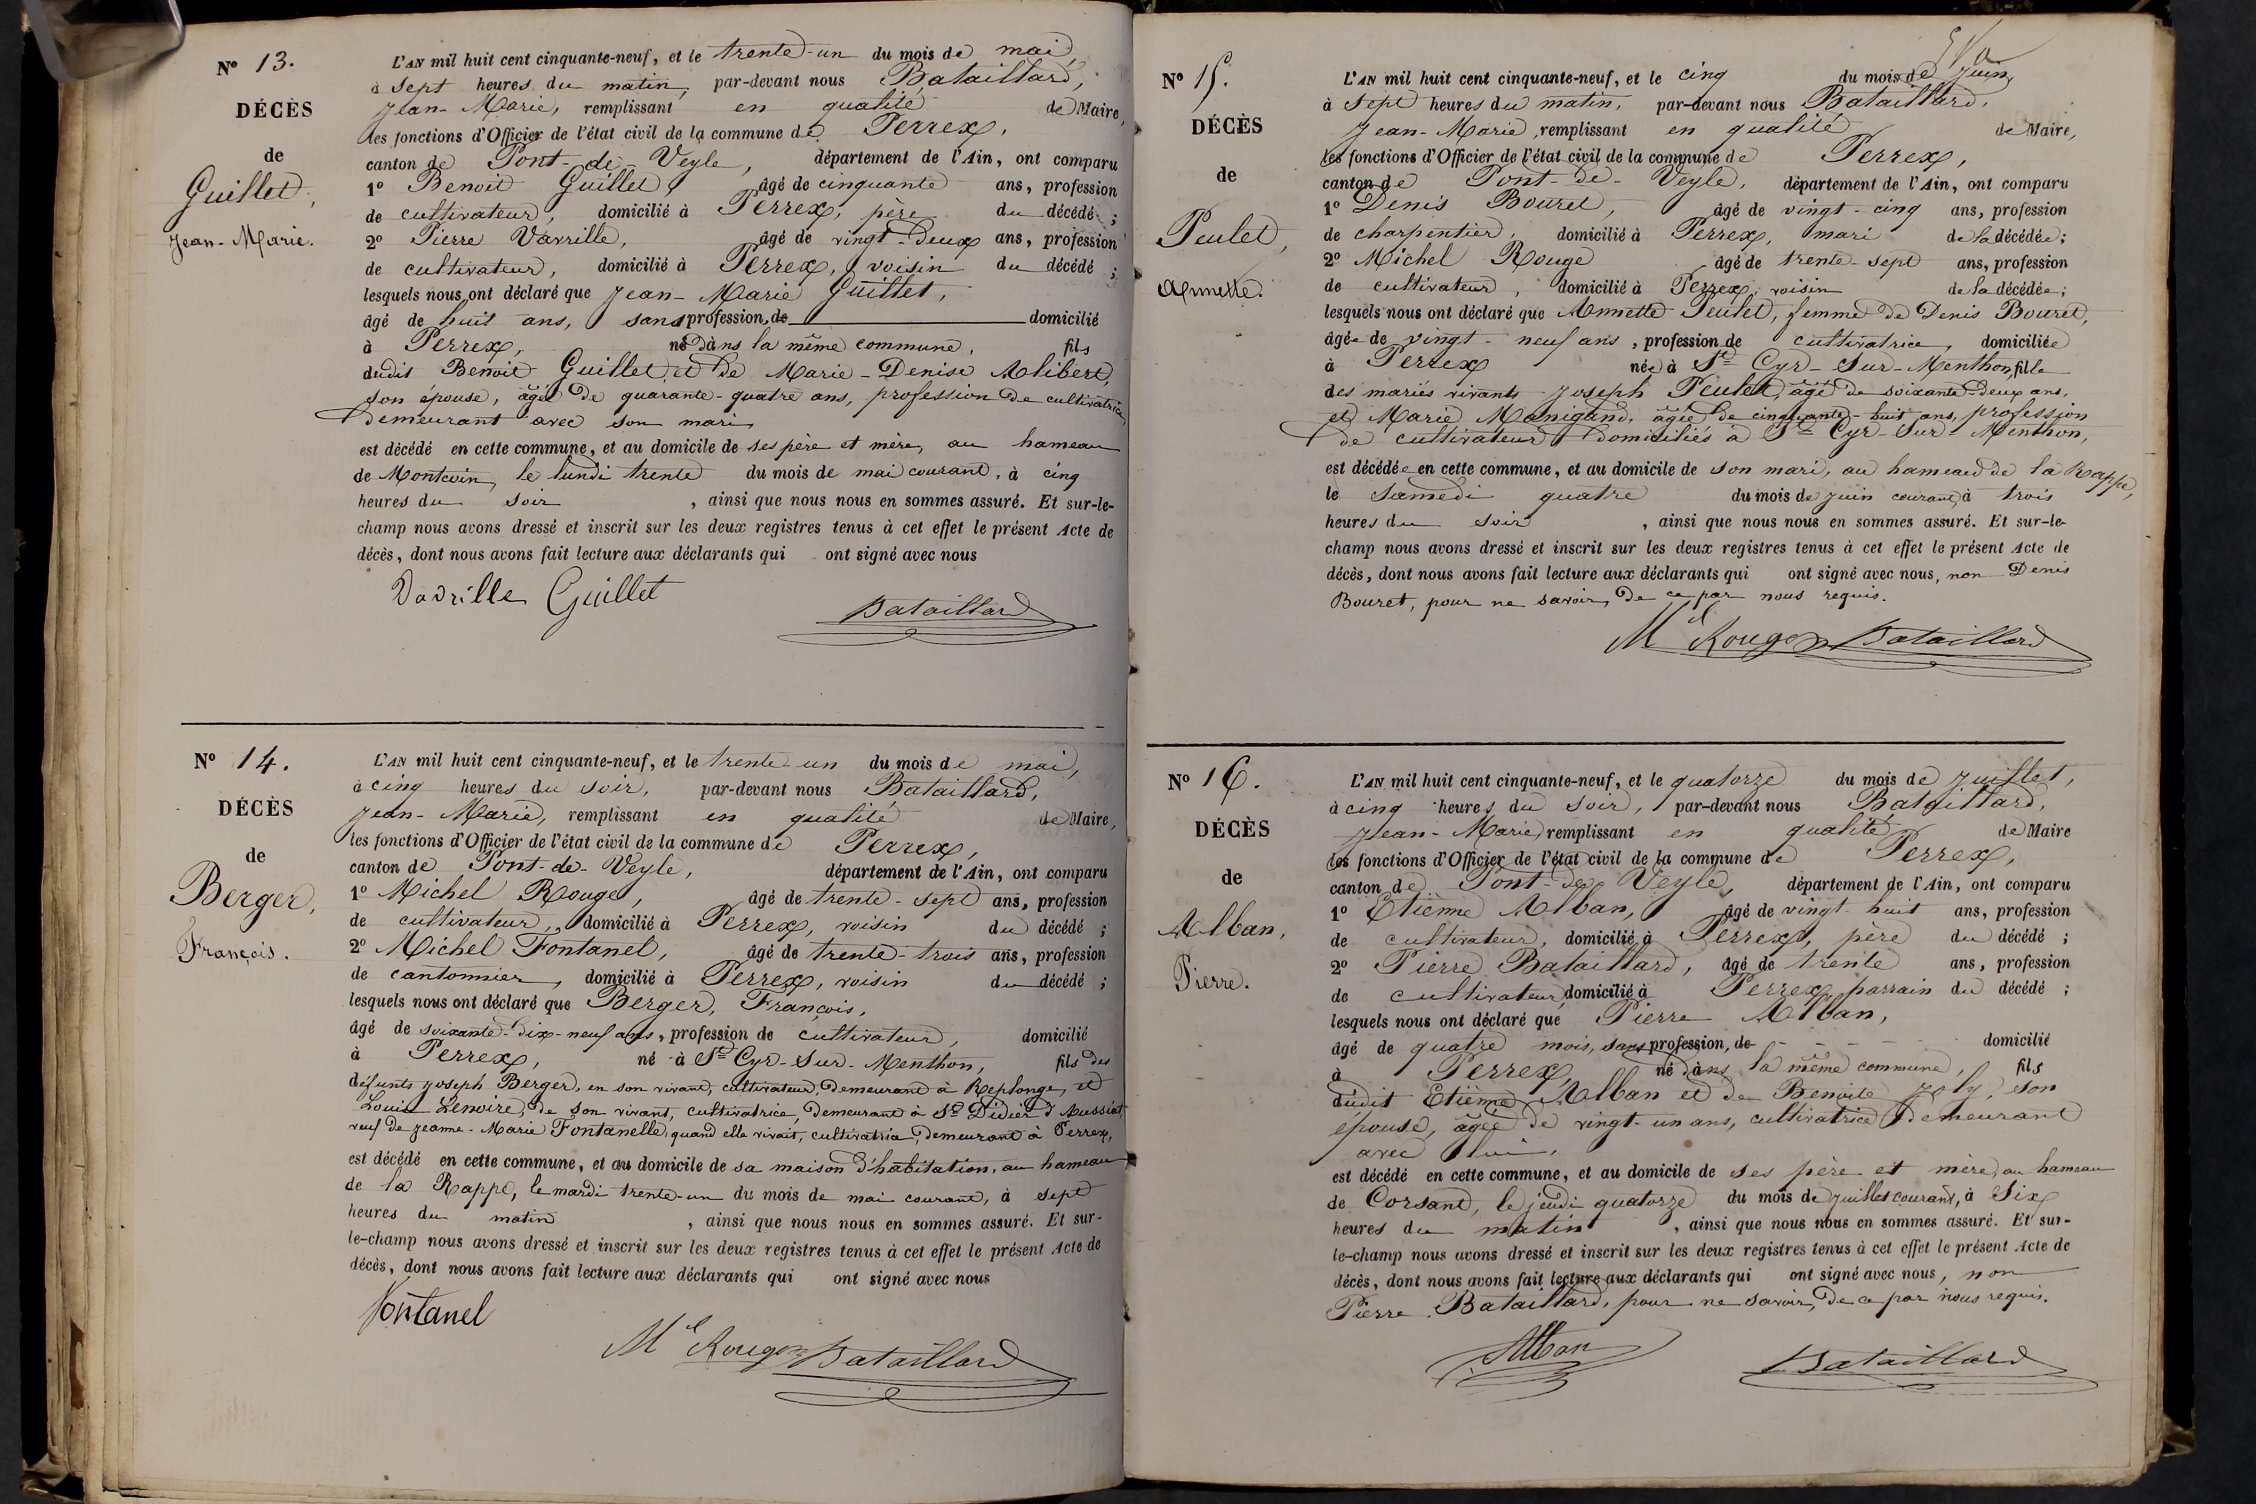 N° 13.
DÉCÈS
de
Guillet,
Jean-Marie.
L'AN mil huit cent cinquante-neuf, et le trente-un du mois de mai,
à sept heures du matin, par-devant nous Bataillard,
Jean-Marie, remplissant en qualité de Maire,
les fonctions d'Officier de l'état civil de la commune de Perrex,
canton de Pont-de-Veyle, département de l'Ain, ont comparu
1° Benoit Guillet, âgé de cinquante ans, profession
de cultivateur, domicilié à Perrex, père du décédé ;
2° Pierre Vavrille, âgé de vingt-deux ans, profession
de cultivateur, domicilié à Perrex, voisin du décédé ;
lesquels nous ont déclaré que Jean-Marie Guillet,
âgé de huit ans, sans profession, de domicilié
à Perrex, né dans la même commune, fils
dudit Benoit Guillet et de Marie-Denise Alibert,
son épouse, âgée de quarante-quatre ans, profession de cultivatrice
demeurant avec son mari
est décédé en cette commune, et au domicile de ses père et mère, au hameau
de Montcoin, le lundi trente du mois de mai courant, à cinq
heures du soir , ainsi que nous nous en sommes assuré. Et sur-le-
champ nous avons dressé et inscrit sur les deux registres tenus à cet effet le présent Acte de
décès, dont nous avons fait lecture aux déclarants qui ont signé avec nous
Vavrille Guillet
Bataillard
N° 14.
DÉCÈS
de
Berger,
François.
L'AN mil huit cent cinquante-neuf, et le trente-un du mois de mai,
à cinq heures du soir, par-devant nous Bataillard,
Jean-Marie, remplissant en qualité de Maire,
les fonctions d'Officier de l'état civil de la commune de Perrex,
canton de Pont-de-Veyle, département de l'Ain, ont comparu
1° Michel Rouge, âgé de trente-sept ans, profession
de cultivateur, domicilié à Perrex, voisin du décédé ;
2° Michel Fontanel, âgé de trente-trois ans, profession
de cantonnier, domicilié à Perrex, voisin du décédé ;
lesquels nous ont déclaré que Berger, François,
âgé de soixante-dix-neuf ans, profession de cultivateur, domicilié
à Perrex, né à St Cyr-Sur-Menthon, fils des
défunts Joseph Berger, en son vivant, cultivateur, demeurant à Replonge, et
Louise Lenoire, de son vivant, cultivatrice, demeurant à St Didier d'Aussiat
veuf de Jeanne-Marie Fontanelle, quand elle vivait, cultivatrice, demeurant à Perrex,
est décédé en cette commune, et au domicile de sa maison d'habitation, au hameau
de la Rappe, le mardi trente-un du mois de mai courant, à sept
heures du matin , ainsi que nous nous en sommes assuré. Et sur-
le-champ nous avons dressé et inscrit sur les deux registres tenus à cet effet le présent Acte de
décès, dont nous avons fait lecture aux déclarants qui ont signé avec nous
Fontanel
Mel Rouge Bataillard
N° 15.
DÉCÈS
de
Peulet,
Annette.
L'AN mil huit cent cinquante-neuf, et le cinq du mois de juin,
à sept heures du matin, par-devant nous Bataillard,
Jean-Marie, remplissant en qualité de Maire,
les fonctions d'Officier de l'état civil de la commune de Perrex,
canton de Pont-de-Veyle, département de l'Ain, ont comparu
1° Denis Bouret, âgé de vingt-cinq ans, profession
de charpentier, domicilié à Perrex, mari de la décédée ;
2° Michel Rouge âgé de trente-sept ans, profession
de cultivateur, domicilié à Perrex, voisin de la décédée ;
lesquels nous ont déclaré que Annette Peulet, femme de Denis Bouret,
âgée de vingt-neuf ans, profession de cultivatrice, domiciliée
à Perrex née à St Cyr-Sur-Menthon, fille
des mariés vivants Joseph Peulet, âgé de soixante-deux ans,
et Marie Manigand, âgée de cinquante-huit ans, profession
de cultivateur domiciliés à St Cyr-Sur-Menthon,
est décédée en cette commune, et au domicile de son mari, au hameau de la Rappe,
le samedi quatre du mois de juin courant, à trois
heures du soir , ainsi que nous nous en sommes assuré. Et sur-le-
champ nous avons dressé et inscrit sur les deux registres tenus à cet effet le présent Acte de
décès, dont nous avons fait lecture aux déclarants qui ont signé avec nous, non Denis
Bouret, pour ne savoir, de ce par nous requis.
Mel Rouge Bataillard
N° 16.
DÉCÈS
de
Alban,
Pierre.
L'AN mil huit cent cinquante-neuf, et le quatorze du mois de juillet,
à cinq heures du soir, par-devant nous Bataillard,
Jean-Marie, remplissant en qualité de Maire
les fonctions d'Officier de l'état civil de la commune de Perrex,
canton de Pont-de-Veyle, département de l'Ain, ont comparu
1° Etienne Alban, âgé de vingt-huit ans, profession
de cultivateur, domicilié à Perrex, père du décédé ;
2° Pierre Bataillard, âgé de trente ans, profession
de cultivateur, domicilié à Perrex, parrain du décédé ;
lesquels nous ont déclaré que Pierre Alban,
âgé de quatre mois, sans profession, de domicilié
à Perrex, né dans la même commune, fils
dudit Etienne Alban et de Benoite Joly, son
épouse, âgée de vingt-un ans, cultivatrice demeurant
avec lui,
est décédé en cette commune, et au domicile de ses père et mère, au hameau
de Corsant, le jeudi quatorze du mois de juillet courant, à six
heures du matin , ainsi que nous nous en sommes assuré. Et sur-
le-champ nous avons dressé et inscrit sur les deux registres tenus à cet effet le présent Acte de
décès, dont nous avons fait lecture aux déclarants qui ont signé avec nous, non
Pierre Bataillard, pour ne savoir, de ce par nous requis.
Alban
Bataillard